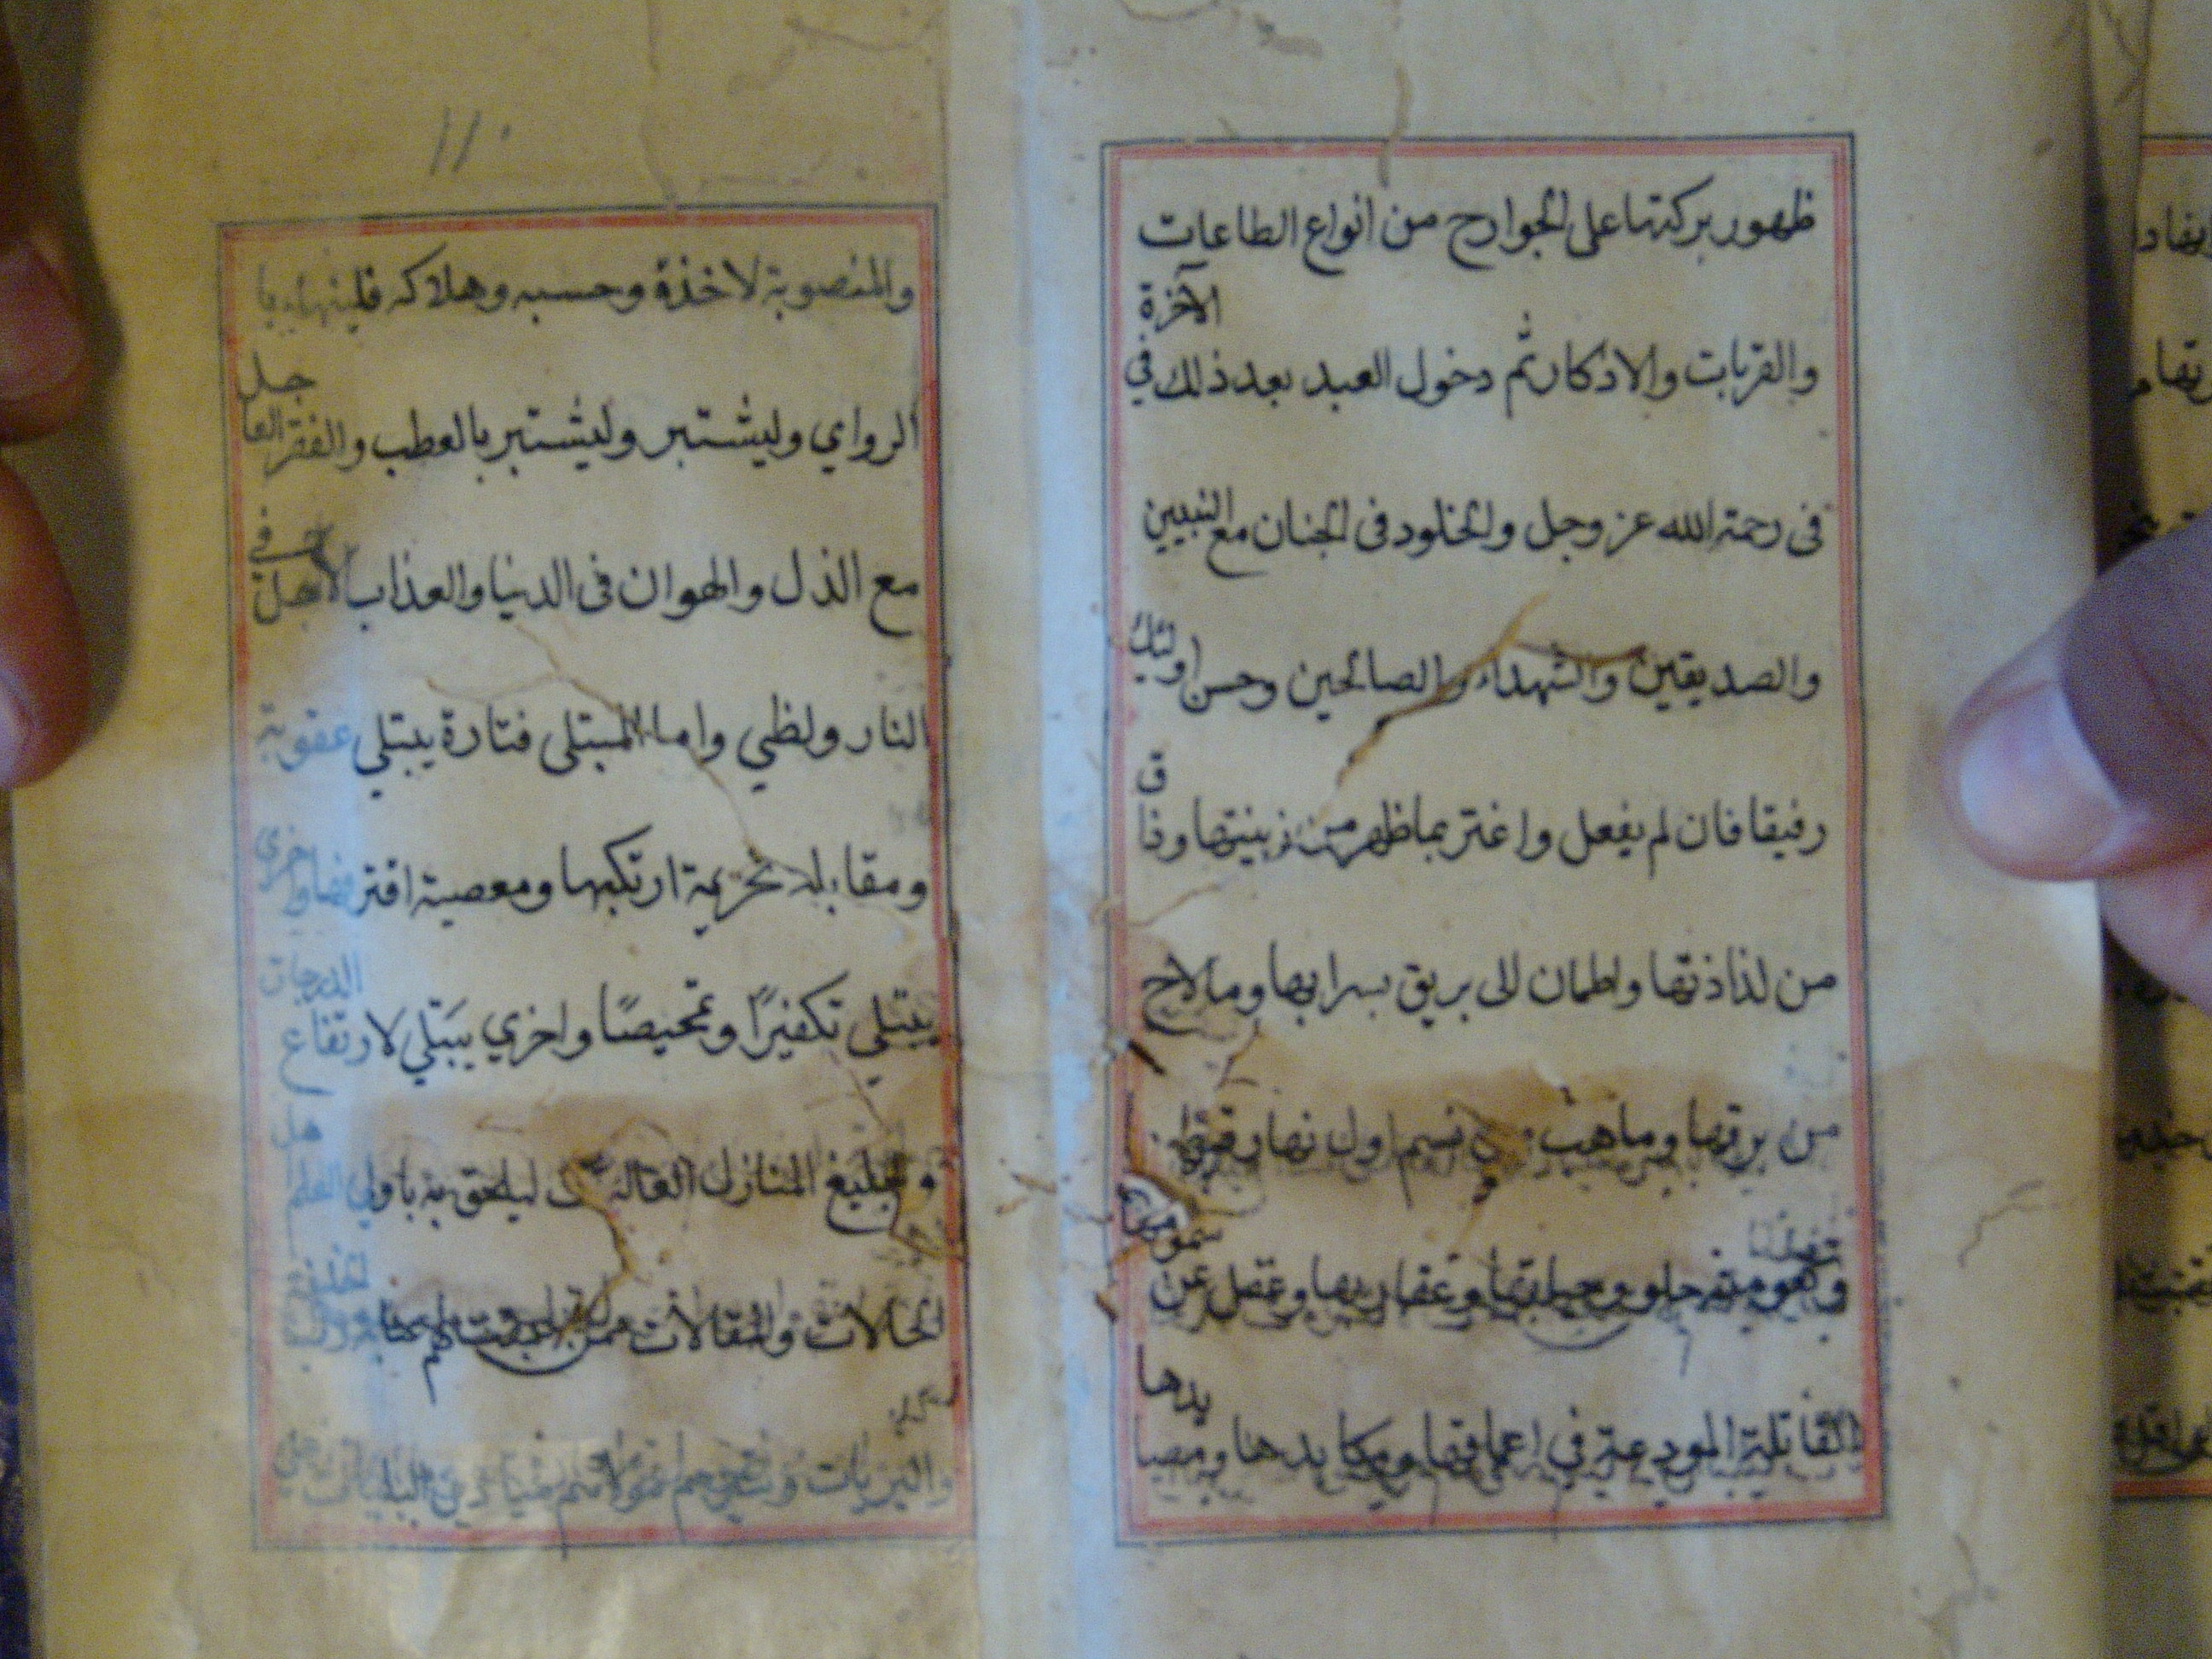 ظهور بركتها على الجوارح من انواع الطاعات
والقربات والاذكار ثم دخول العبد بعد ذلك في الآخرة
في رحمة الله عز وجل والخلود في الجنان مع النبيين
والصديقين والشهداء والصالحين وحسن اولئك
رفيقا فان لم يفعل واغتر بما ظهر من زينتها وذاق
من لذاذتها واطمان الى بريق سرابها وما لاح
من برقها وما هب من نسيم اول نهار
وغفل عن سمومها
القاتلة المودعة في اعماقها ومكايدها ومصايدها
١١٠
والمنصوبة لاخذه وحبسه وهلاكه فليتهنا با
الرواي وليشتبر وليشتبر بالعطب والفقر العاجل
مع الذل والهوان في الدنيا والعذاب الاجل في
النار ولظي واما المبتلى فتارة يبتلي عقوبة
ومقابلة لجريمة ارتكبها ومعصية اقترفها واخري
يبتلي تكفيرًا وتمحيصًا واخري يبتلي لارتفاع الدرجات
وتبليغ المنازل العاليات ليلحق به باولي العلم اهل
الحالات والمقامات ممن